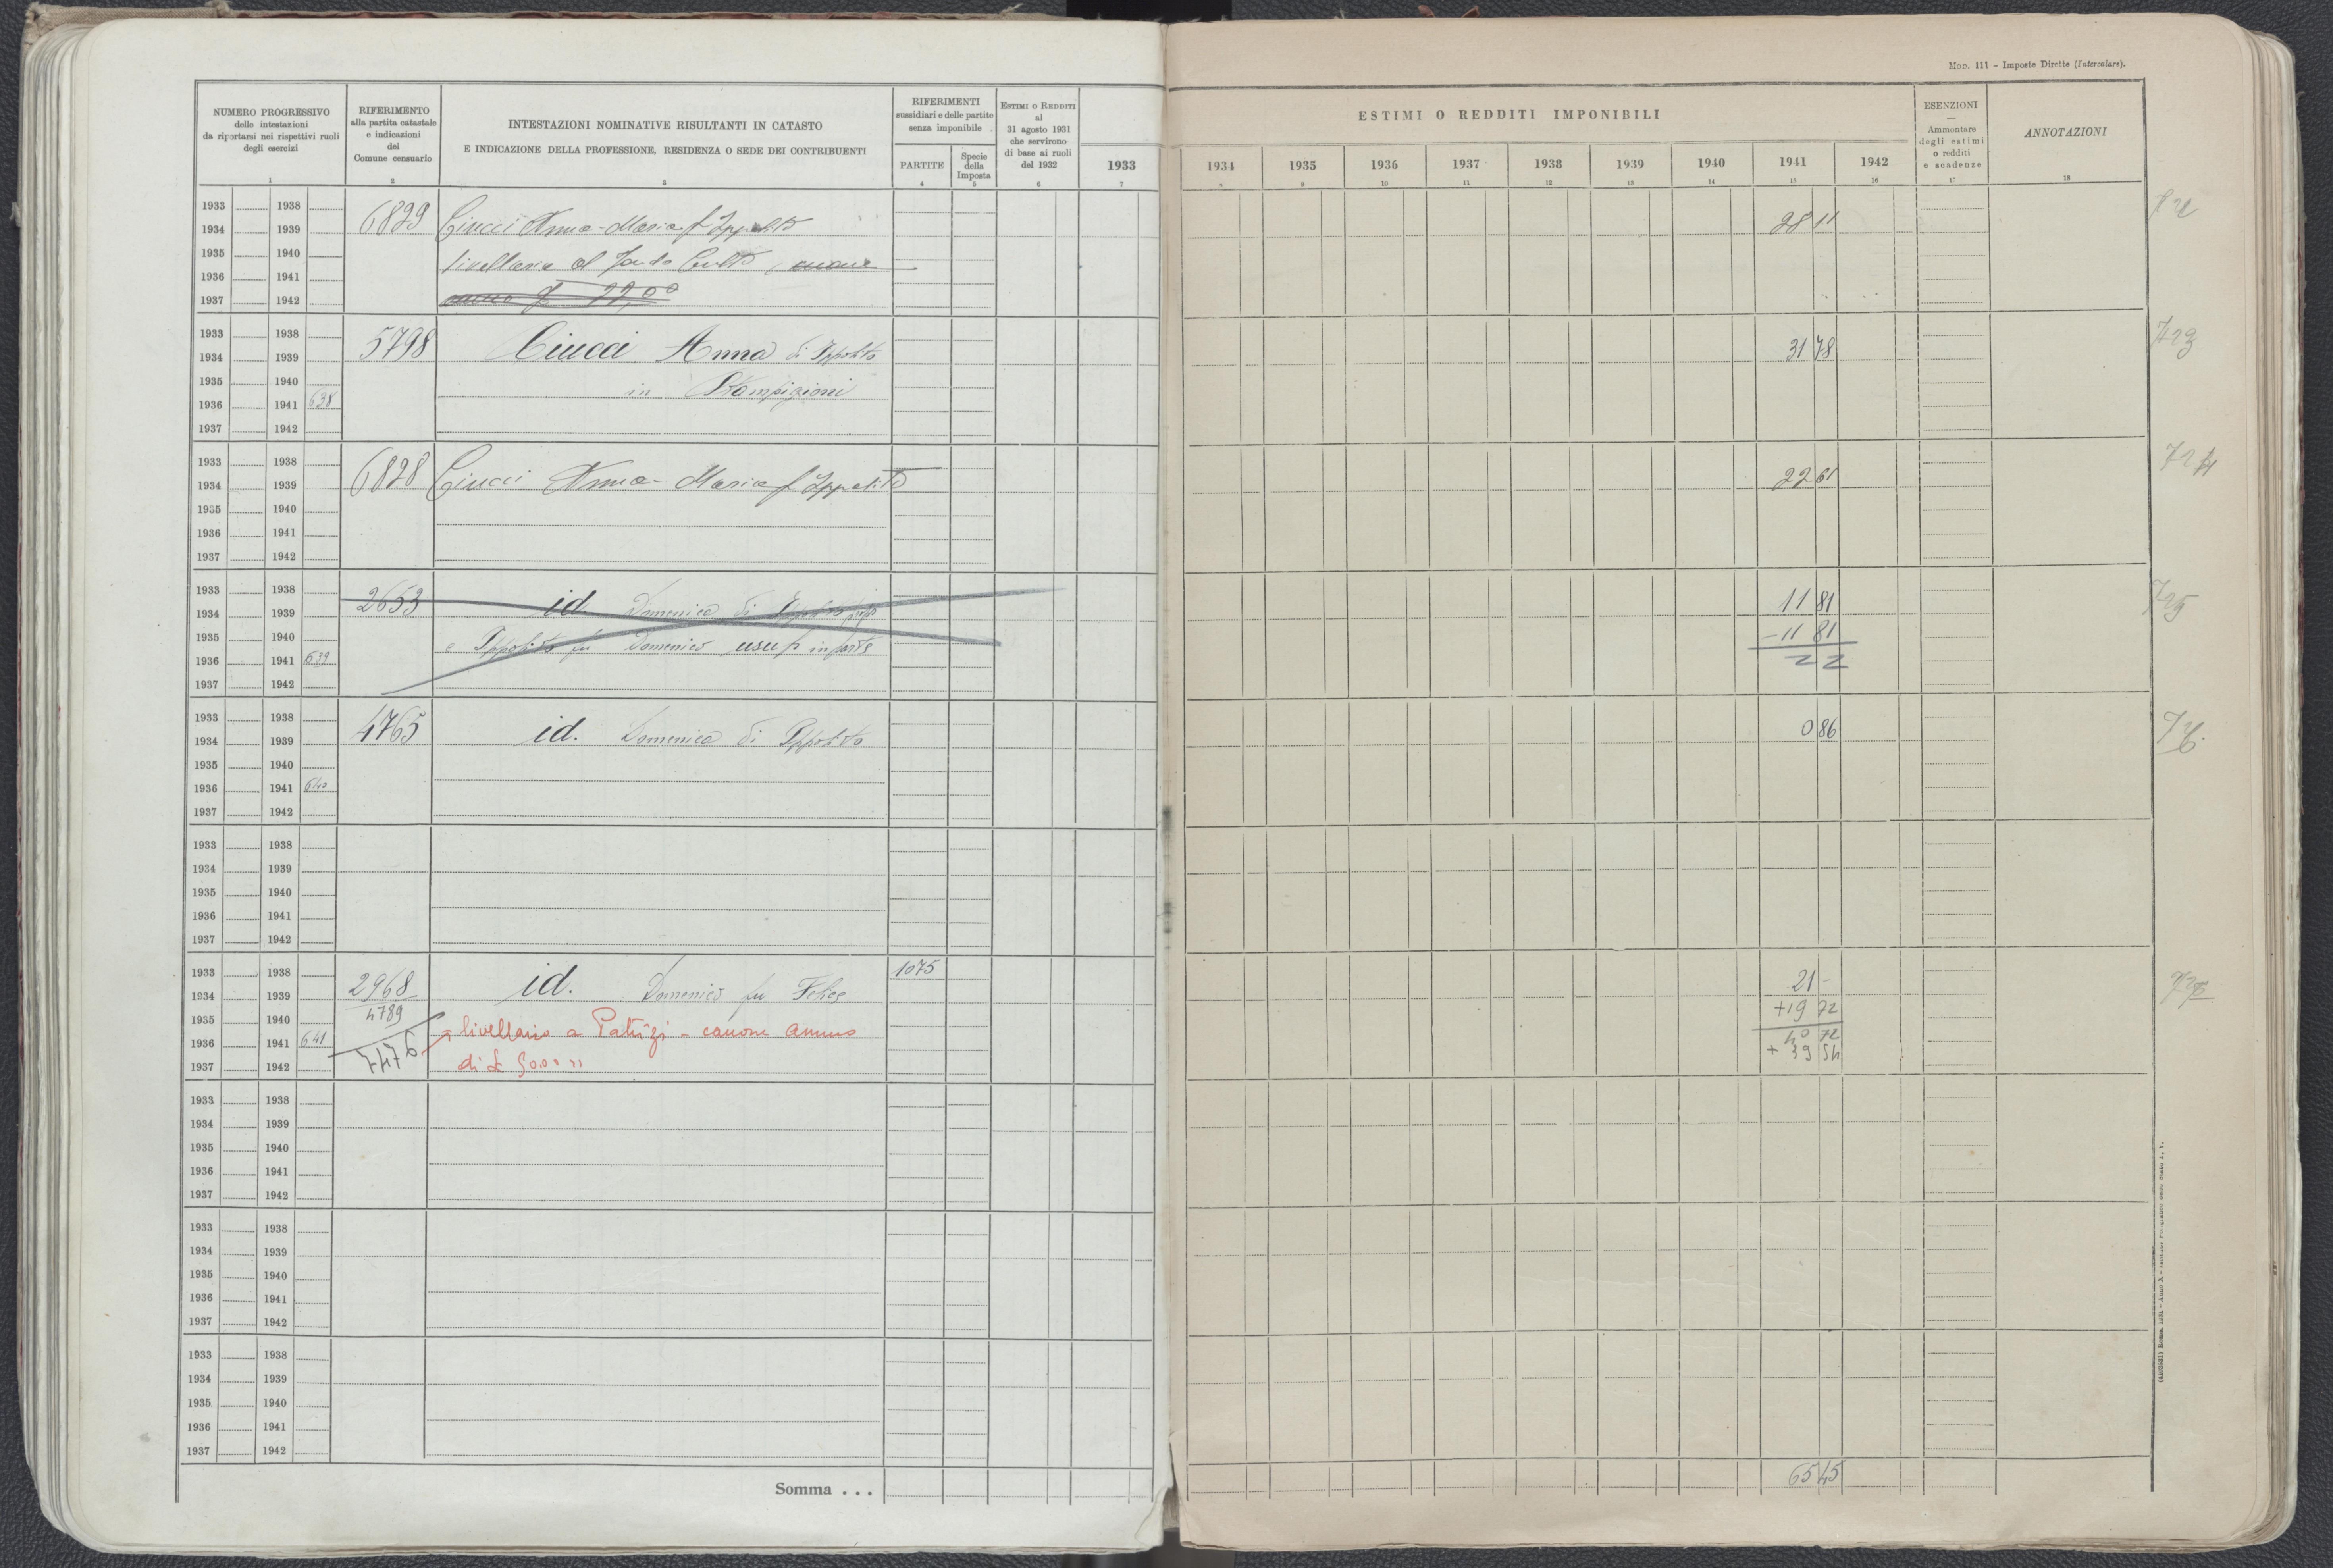 Mod. 111 - Imposte Dirette (Intercalare).
NUMERO PROGRESSIVO
delle intestazioni
da riportarsi nei rispettivi ruoli
degli esercizi
1
RIFERIMENTO
alla partita catastale
e indicazioni
del
Comune censuario
2
INTESTAZIONI NOMINATIVE RISULTANTI IN CATASTO
E INDICAZIONE DELLA PROFESSIONE, RESIDENZA O SEDE DEI CONTRIBUENTI
3
RIFERIMENTI
sussidiari e delle partite
senza imponibile
PARTITE
4
Specie
della
Imposta
5
ESTIMI O REDDITI
al
31 agosto 1931
che servirono
di base ai ruoli
del 1932
6
ESTIMI O REDDITI IMPONIBILI
1933 1934 1935 1936 1937 1938 1939 1940 1941 1942
7 9 10 11 12 13 14 15 16
ESENZIONI
—
Ammontare
degli estimi
o redditi
e scadenze
17
ANNOTAZIONI
18
1933 1938
1934 1939 6829 Ciucci Anna-Maria f Ippolito 28 11
1935 1940 livellaria al Fondo Culto, canone
1936 1941
1937 1942 annuo £ 22,00
1933 1938
1934 1939 5798 Ciucci Anna di Ippolito 31 78 723
1935 1940 in Stampigioni
1936 1941 638
1937 1942
1933 1938
1934 1939 6828 Ciucci Anna-Maria f Ippolito 22 61 724
1935 1940
1936 1941
1937 1942
1933 1938
1934 1939 2653 id. Domenico di Ippolito prop 11 81 725
1935 1940 e Ippolito fu Domenico usuf in parte -11 81
1936 1941 639
1937 1942
1933 1938
1934 1939 4765 id. Domenico di Ippolito 0 86 726
1935 1940
1936 1941 640
1937 1942
1933 1938
1934 1939
1935 1940
1936 1941
1937 1942
1933 1938 1075
1934 1939 2968 id. Domenico fu Felice 21 -
1935 1940 4789 livellario a Patrizi - canone annuo +19 72
1936 1941 641 7476 40 72
1937 1942 di £ +39 54
1933 1938
1934 1939
1935 1940
1936 1941
1937 1942
1933 1938
1934 1939
1935 1940
1936 1941
1937 1942
1933 1938
1934 1939
1935 1940
1936 1941
1937 1942
Somma . . . 65 45